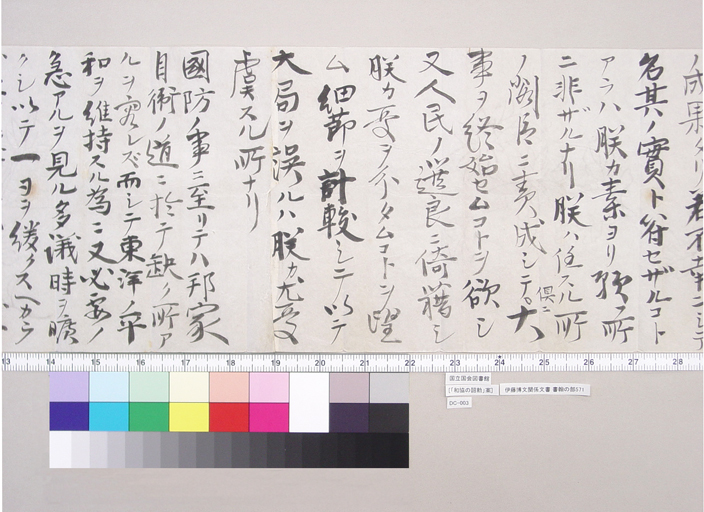 ノ成果タリ若不幸ニシテ
名其ノ實ト符セザルコト
アラハ朕カ素ヨリ所
ニ非ザルナリ朕ハ任スル所
ノ閣臣ニ責成シテ倶ニ大
事ヲ終始セムコトヲ欲シ
又人民ノ選良ニ倚藉シ
朕カ憂ヲ分タムコトヲ望
ム細節ヲ計較シテ以テ
大局ヲ誤ルハ朕カ尤憂
虞スル所ナリ
國防ノ事ニ至リテハ邦家
自衛ノ道ニ於テ缺ク所ア
ルヲ容レズ而シテ東洋ノ平
和ヲ維持スル為ニ又必要ノ
急アルヲ見ル多議時ヲ曠
クシ以テ一日ヲ緩クスヘカラ
13 14 15 16 17 18 19 20 21 22 23 24 25 26 27 28
国立国会図書館
[「和協の詔勅」案]
伊藤博文関係文書 書類の部571
DC-003